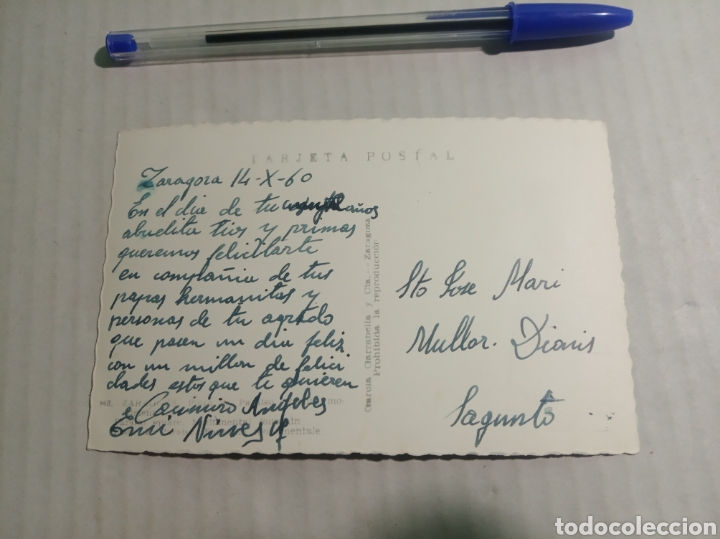 TARJETA POSTAL
Zaragoza 14-X-60
En el dia de tu años
abuelita tios y primas
queremos felicitarte
en compañia de tus
papas hermanitas y
personas de tu agrado
que pasen un dia feliz
con un millon de felici
dades estos que te quieren
Casimiro Angeles
Emi Nieves y
García Garrabella y Cía. - Zaragoza
Prohibida la reproducción
Sto Jose Mari
Mullor. Dionis
Sagunto
todocoleccion